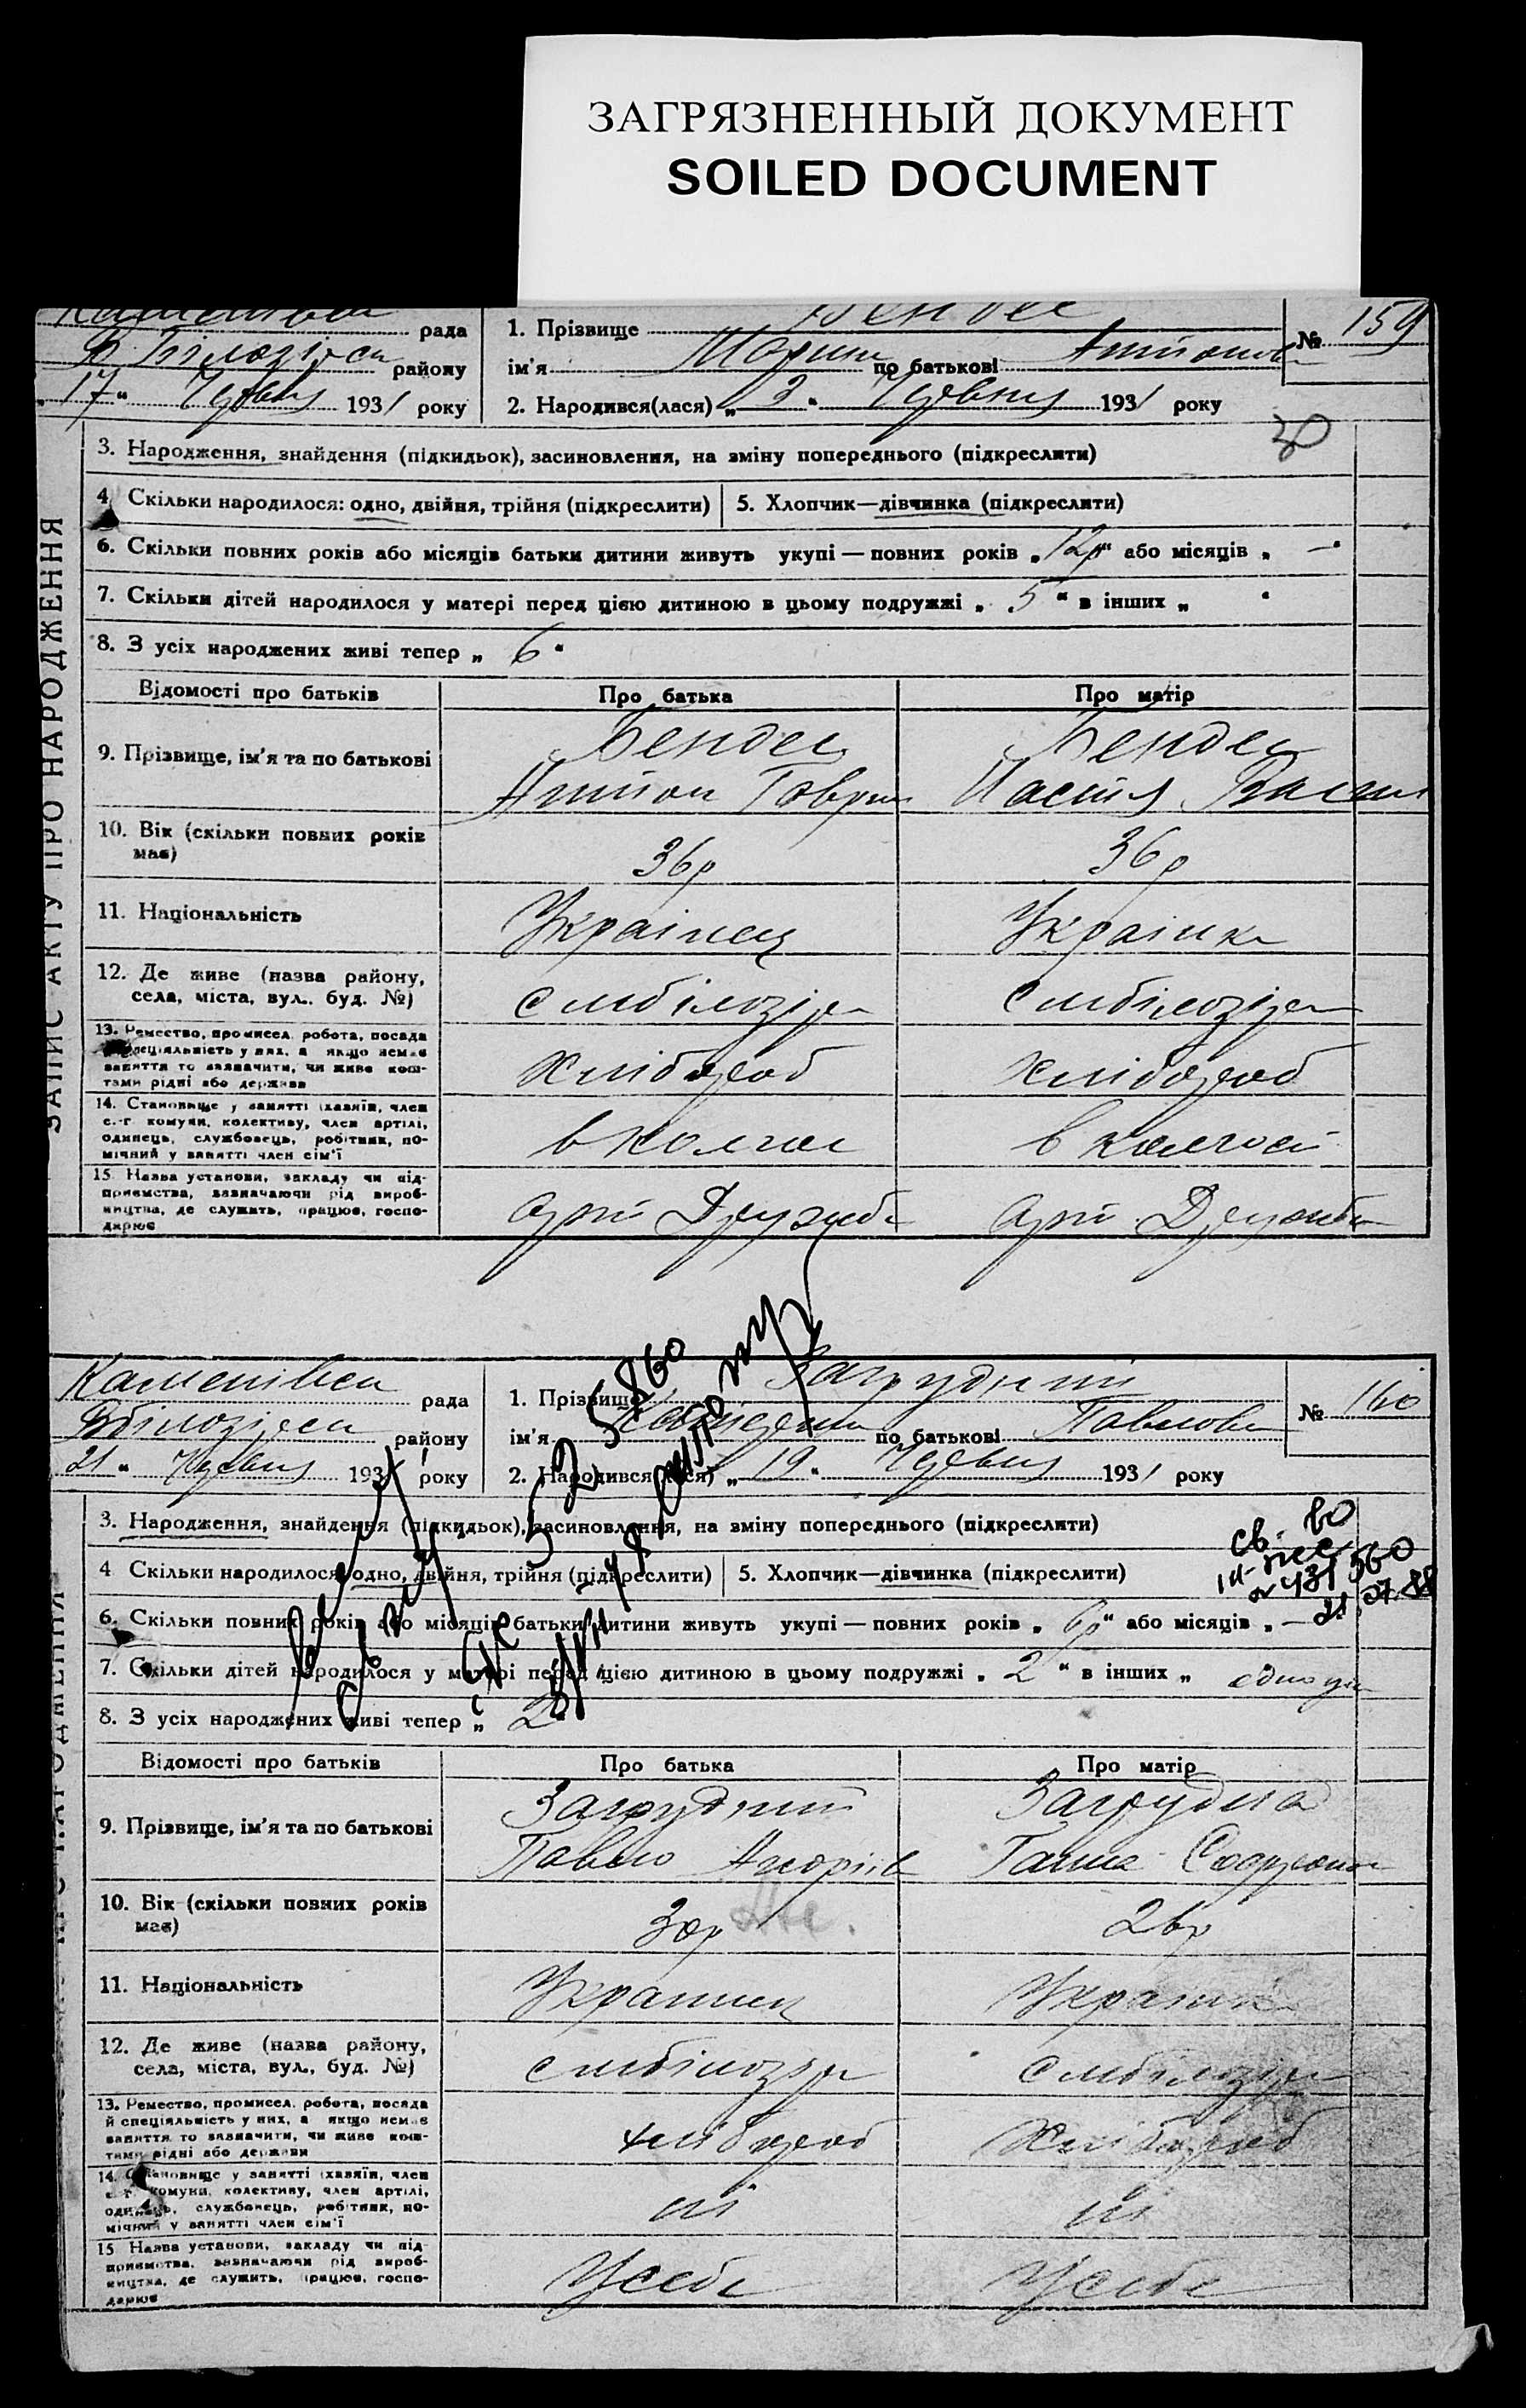 ЗАГРЯЗНЕННЫЙ ДОКУМЕНТ
SOILED DOCUMENT
рада
района
"17" Червня 1931 року
1. Прізвище Бендес
ім'я Марина по батькові Антонов
2. Народився(лася) „3" Червня 1931 року
№ 159
ЗАПИС АКТУ ПРО НАРОДЖЕННЯ
3. Народження, знайдення (підкидьок), засиновлення, на зміну попереднього (підкреслити)
4. Скільки народилося: одно, двійня, трійня (підкреслити)
5. Хлопчик—дівчинка (підкреслити)
6. Скільки повних років або місяців батьки дитини живуть укупі — повних років „12р" або місяців „—"
7. Скільки дітей народилося у матері перед цією дитиною в цьому подружжі „5" в інших „ "
8. З усіх народжених живі тепер „6"
Відомості про батьків Про батька Про матір
9. Прізвище, ім'я та по батькові
Бендес Бендес
Антон Гаврил Настя Васил
10. Вік (скільки повних років має)
36р 36р
11. Національність
Українець Українка
12. Де живе (назва району, села, міста, вул., буд. №)
13. Ремество, промисел, робота, посада й спеціяльність у них, а якщо немає заняття то зазначити, чи живе коштами рідні або держави
хлібороб хлібороб
14. Становище у занятті (хазяїн, член с.-г. комуни, колективу, член артілі, одинець, службовець, робітник, помічний у занятті член сім'ї
в колгос в колгоспі
15. Назва установи, закладу чи підприємства, зазначаючи рід виробництва, де служить, працює, господарює
арт Дружба арт. Дружба
рада
району
21" Червня 1931 року
1. Прізвище Загрудний
ім'я по батькові Павлова
2. Народився(лася) „19" Червня 1931 року
№ 160
3. Народження, знайдення (підкидьок), засиновлення, на зміну попереднього (підкреслити)
4 Скільки народилося: одно, двійня, трійня (підкреслити)
5. Хлопчик—дівчинка (підкреслити)
6. Скільки повних років або місяців батьки дитини живуть укупі — повних років „6р" або місяців „—
7. Скільки дітей народилося у матері перед цією дитиною в цьому подружжі „2" в інших „
8. З усіх народжених живі тепер „2"
Відомості про батьків Про батька Про матір
9. Прізвище, ім'я та по батькові
Загрудний Загрудна
Павло Андріїв Ганна
10. Вік (скільки повних років має)
30р 26р
11. Національність
Украинец Україн
12. Де живе (назва району, села, міста, вул., буд. №)
13. Ремество, промисел, робота, посада й спеціяльність у них, а якщо немає заняття то зазначити, чи живе коштами рідні або держави
хлібороб хлібороб
14. Становище у занятті (хазяїн, член с.-г. комуни, колективу, член артілі, одинець, службовець, робітник, помічний у занятті член сім'ї
15 Назва установи, закладу чи підприємства, зазначаючи рід виробництва, де служить, працює, господарює
У себе У себе